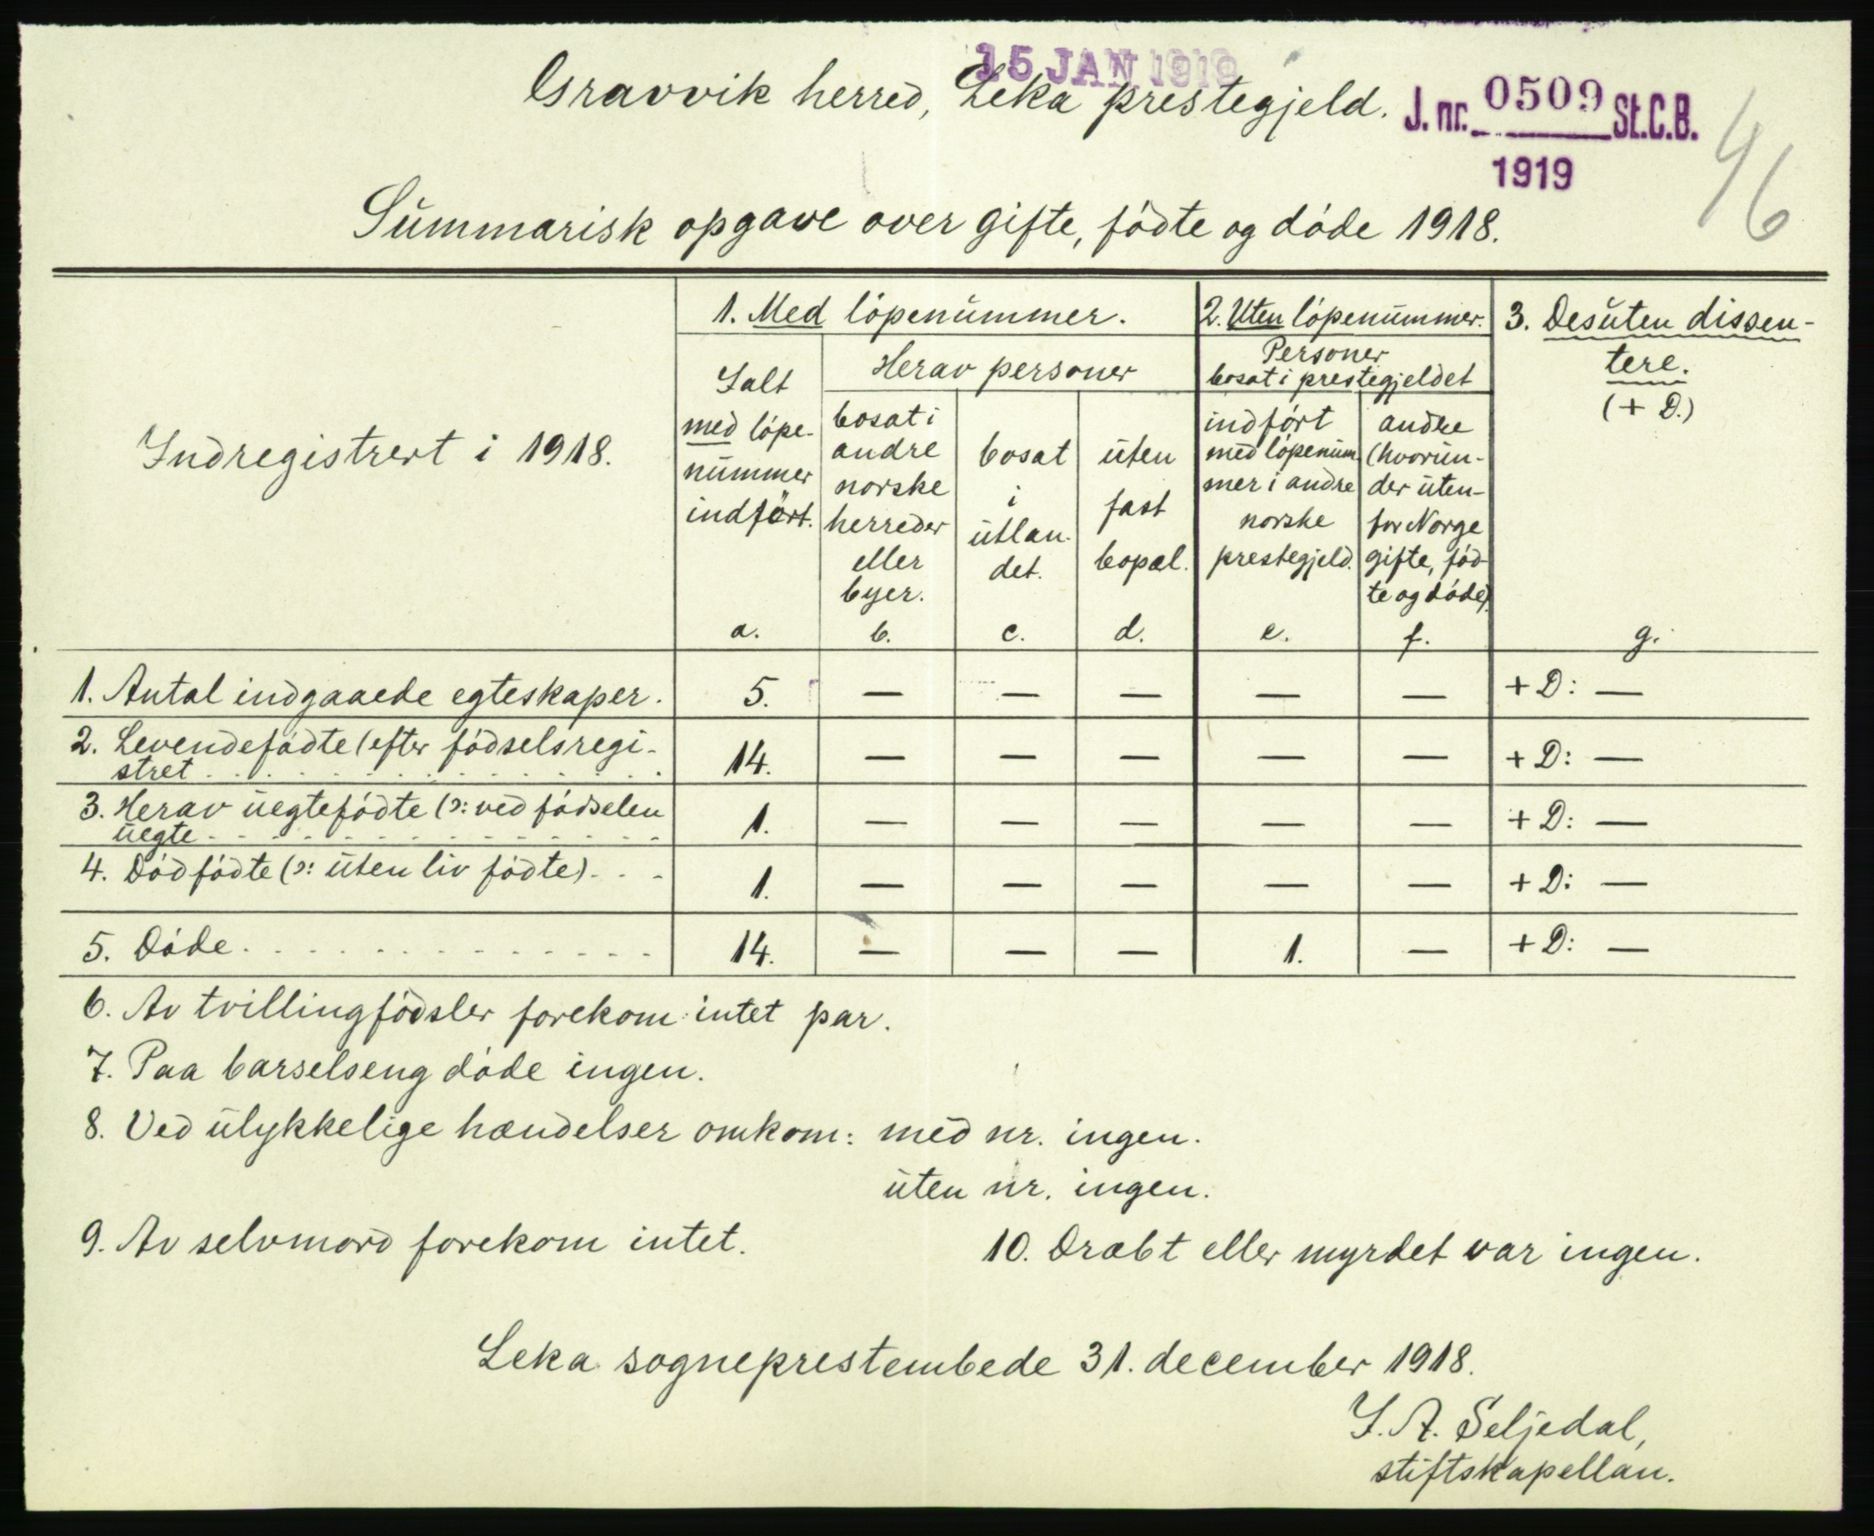 15 JAN 1919
Gravvik herred, Leka prestegjeld.
J. nr. 0509 St.C.B.
1919
46
Summarisk opgave over gifte, fødte og døde 1918.
Indregistrert i 1918.
1. Med løpenummer.
2. Uten løpenummer.
3. Desuten dissen-
tere.
(+ D.)
Ialt
med løpe-
nummer
indført.
a.
Herav personer
bosat i
andre
norske
herreder
eller
byer.
b.
bosat
i
utlan-
det.
c.
uten
fast
bopæl.
d.
Personer
bosat i prestegjeldet
indført
med løpenum
mer i andre
norske
prestegjeld.
e.
andre
(hvorun-
der uten-
for Norge
gifte, fød-
te og døde).
f.
g.
1. Antal indgaaede egteskaper. 5. — — — — — + D: —
2. Levendefødte (efter fødselsregi-
stret . . . . . . . . . . . . . . 14. — — — — — + D: —
3. Herav uegtefødte (ɔ: ved fødselen
uegte - - - - - - - - - - - - - - 1. — — — — — + D: —
4. Dødfødte (ɔ: uten liv fødte) - - - 1. — — — — — + D: —
5. Døde. . . . . . . . . . . . . . 14. — — — 1. — + D: —
6. Av tvillingfødsler forekom intet par.
7. Paa barselseng døde ingen.
8. Ved ulykkelige hændelser omkom: med nr. ingen.
uten nr. ingen.
9. Av selvmord forekom intet.
10. Dræbt eller myrdet var ingen.
Leka sogneprestembede 31. december 1918.
I. A. Seljedal,
stiftskapellan.